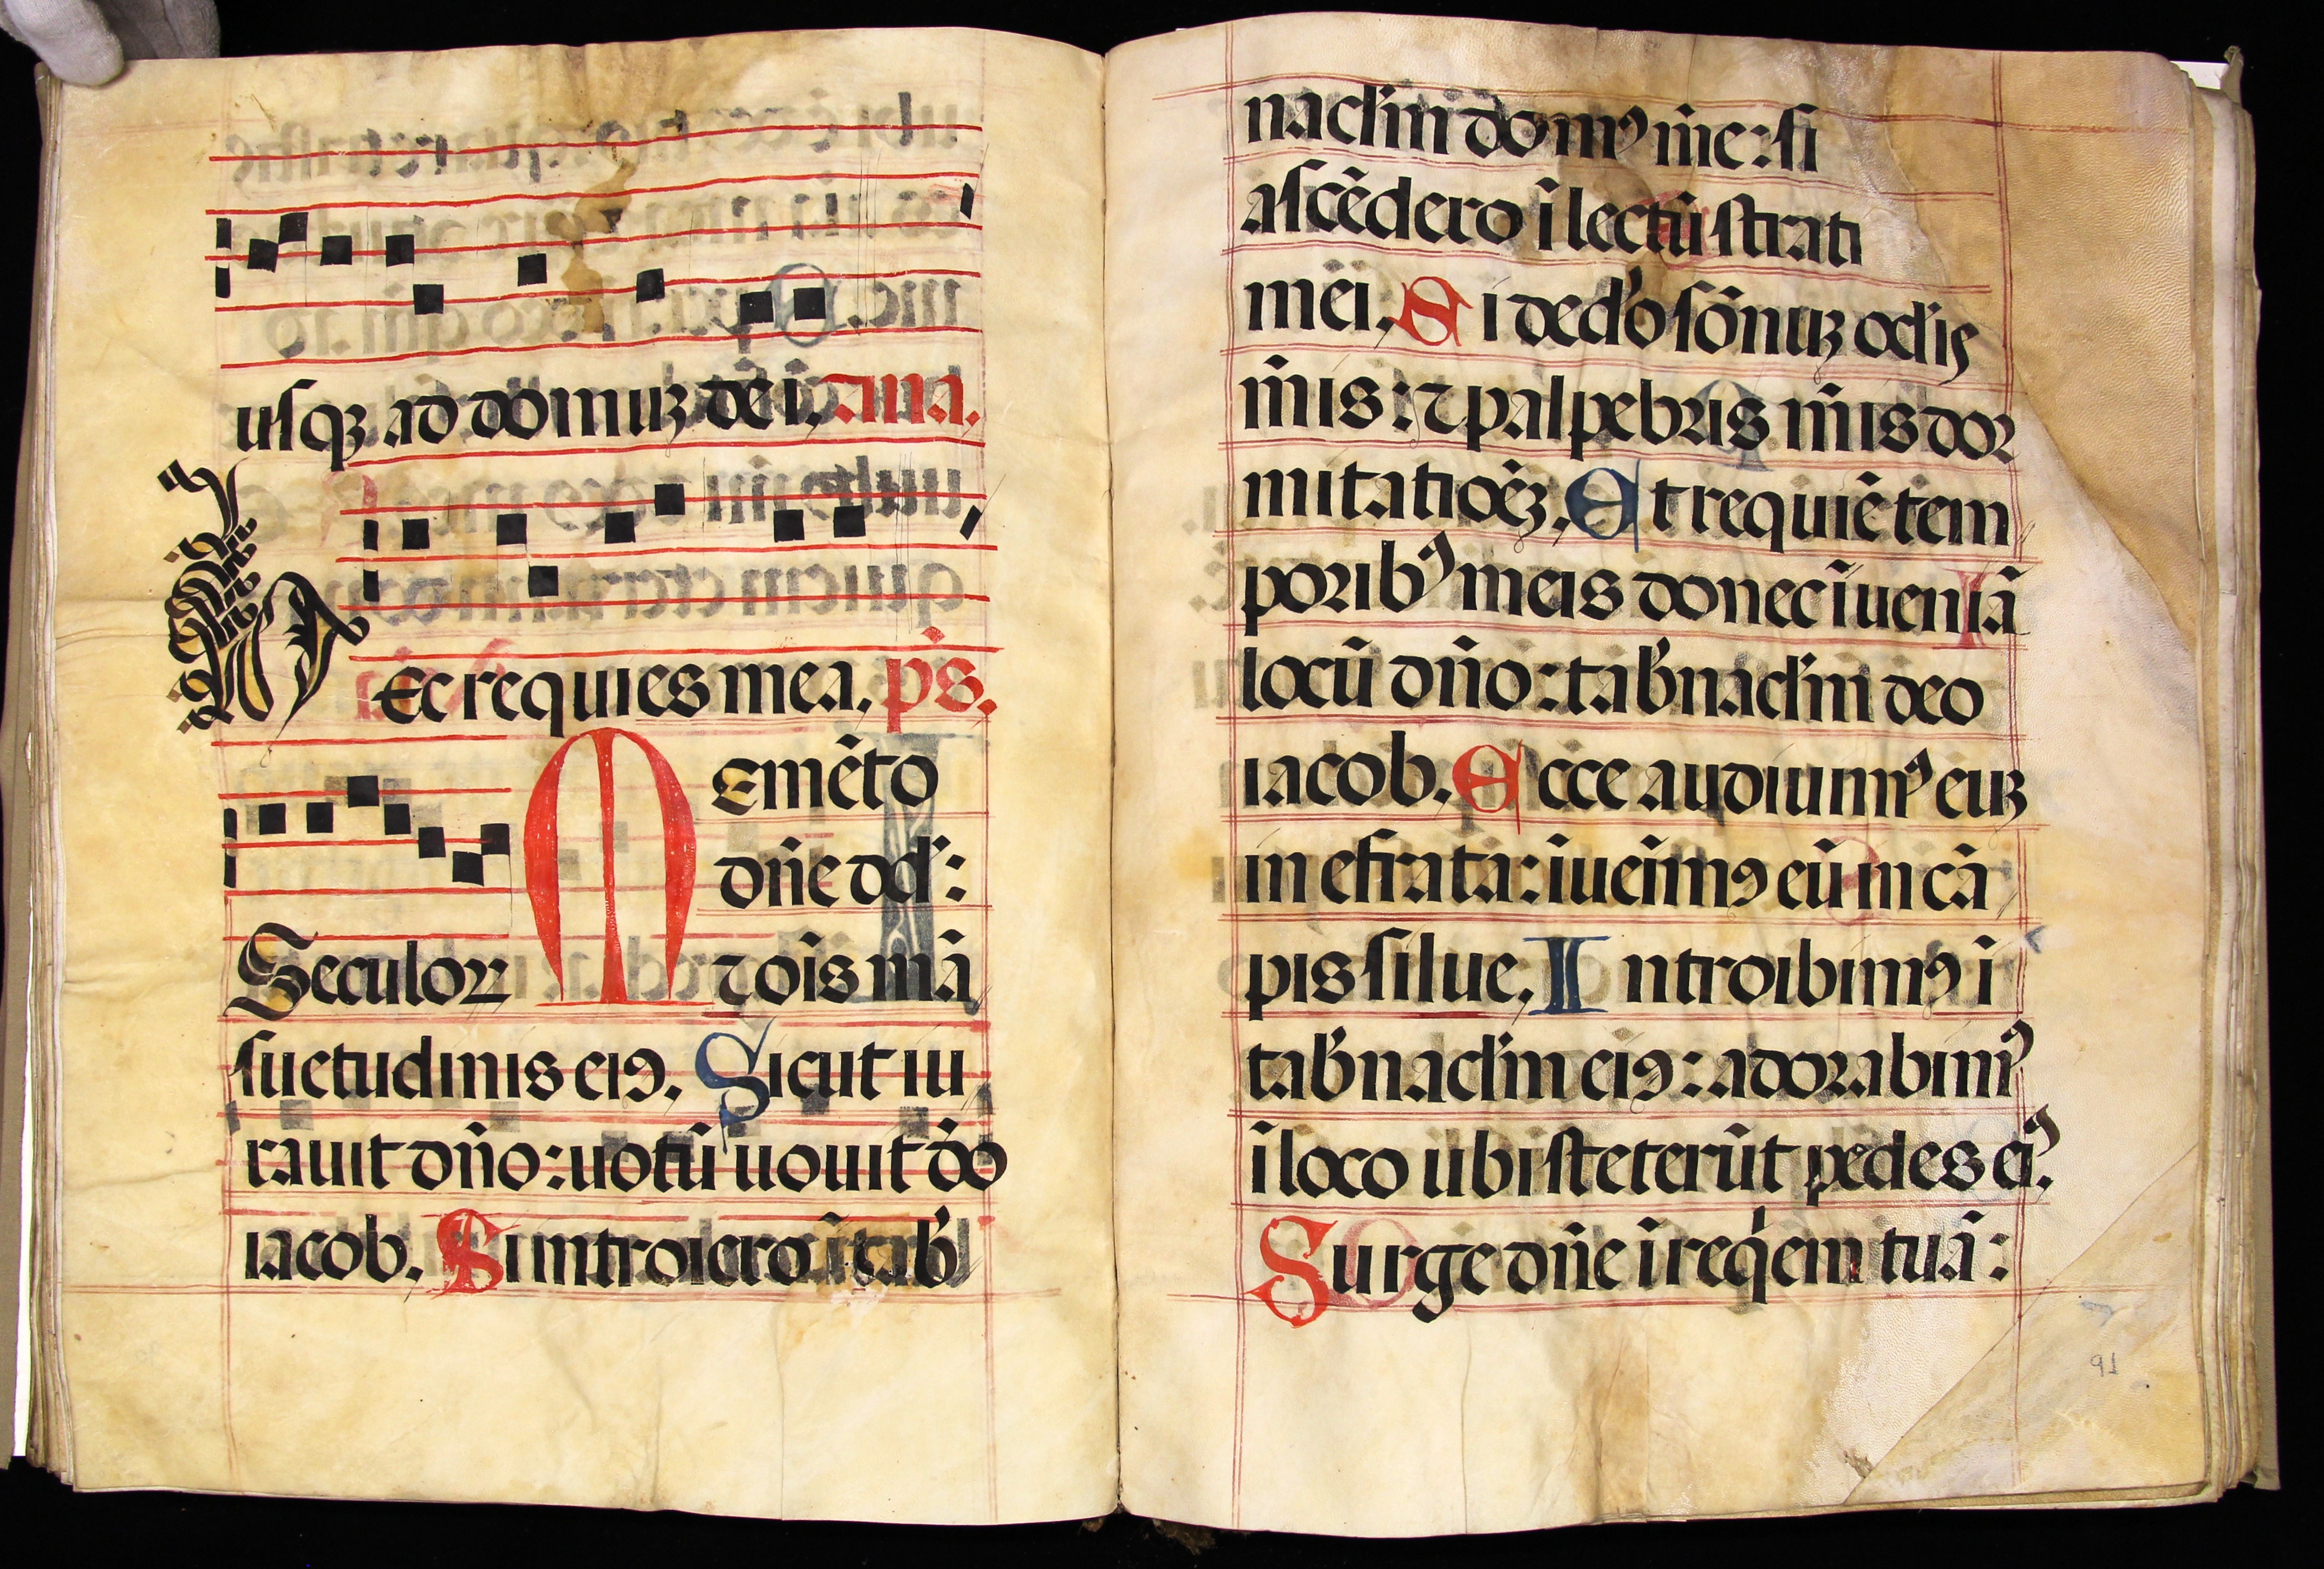 usqꝫ ad domuꝫ dei. ana.
Ec requies mea. ps.
Emēto
dñe dd̄:
Seculoꝝ
⁊ oīs mā
suetudinis eiꝰ. Sicut iu
rauit dño: uotū uouit dō
iacob. Si introiero ī tab̄
nacl̄m domꝰ m̄e: si
ascēdero ī lectū strati
mei. Si ded̄o sōnuꝫ ocl̄is
m̄is: ⁊ palpebris m̄is dor
mitatioēꝫ. Et requiē tem
poribꝰ meis donec īueniā
locū dño: tab̄nacl̄m deo
iacob. Ecce audiuimꝰ euꝫ
in efrata: īueīmꝰ eū in cā
pis silue. Introibimꝰ ī
tab̄nacl̄m eiꝰ: adorabimꝰ
ī loco ubi steterūt pedes eiꝰ.
Surge dñe ī reqēm tuā:
91